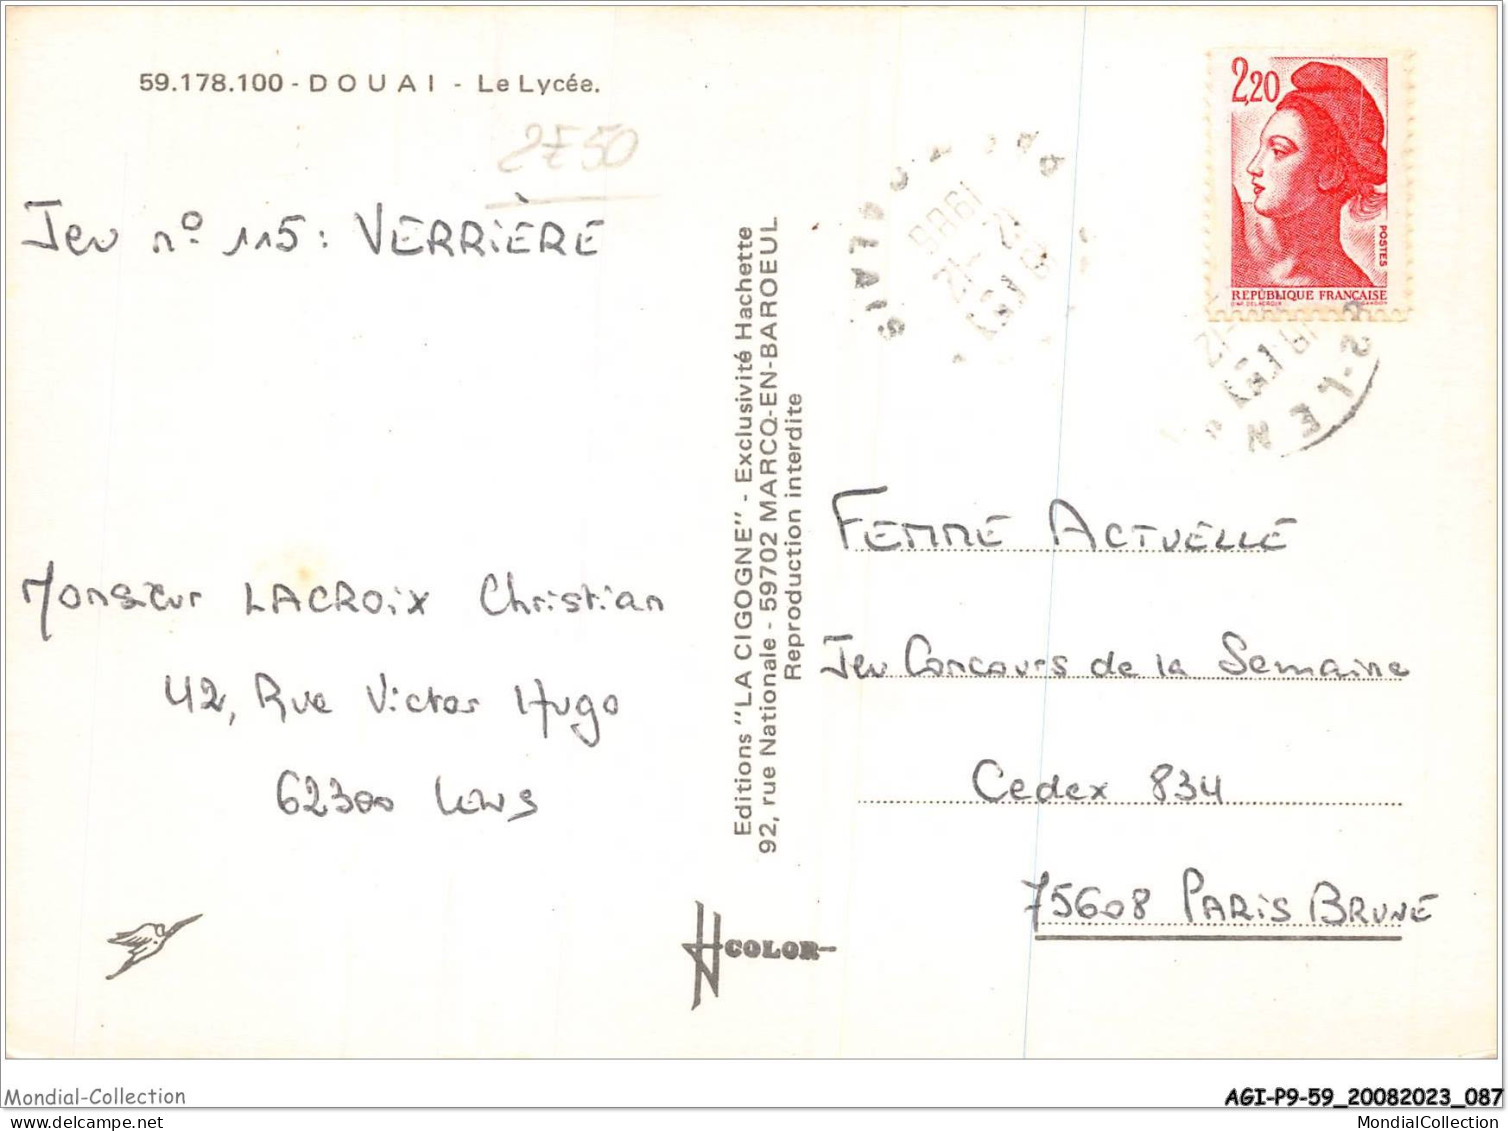 59.178.100 - DOUAI - Le Lycée.
2F50
Jeu n° 115 : VERRIÈRE
Monsieur LACROIX Christian
42, Rue Victor Hugo
62300 Lens
Editions "LA CIGOGNE" - Exclusivité Hachette
92, rue Nationale - 59702 MARCQ-EN-BAROEUL
Reproduction interdite
COLOR
2,20
POSTES
REPUBLIQUE FRANÇAISE
1988
LENS
FEMME ACTUELLE
Jeu Concours de la Semaine
Cedex 834
75608 PARIS BRUNE
Mondial-Collection
AGI-P9-59_20082023_087
MondialCollection
www.delcampe.net